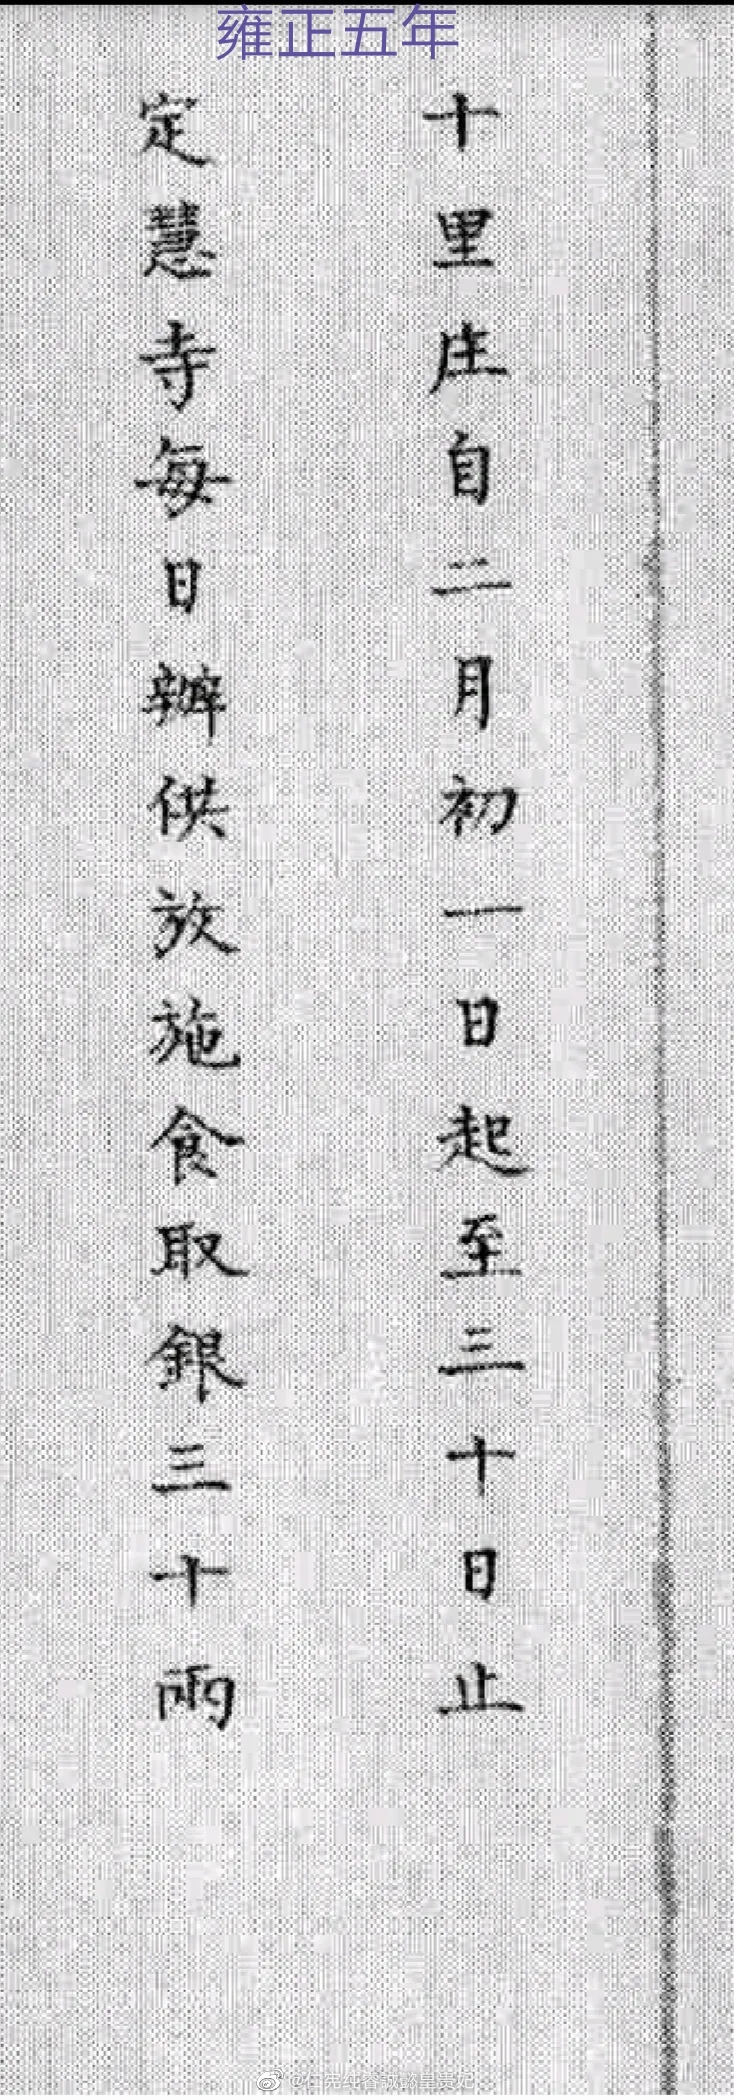 雍正五年
十里庄自二月初一日起至三十日止
定慧寺每日辦供放施食取銀三十両